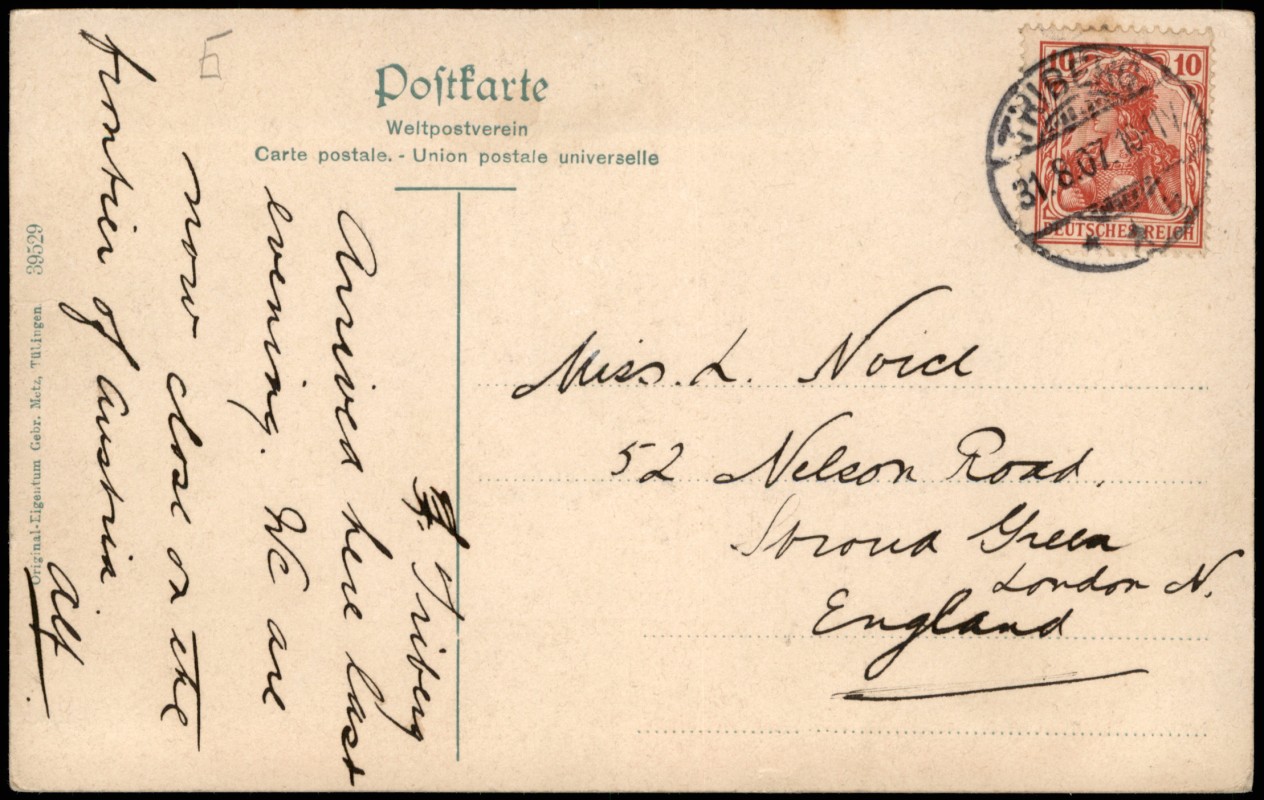 Postkarte
Weltpostverein
Carte postale. - Union postale universelle
10 10
TRIBERG
31.8.07.
DEUTSCHES REICH
Triberg
Arrived here last
evening. We are
now close on the
frontier of Austria
Alf
Miss. L. Noid
52 Nelson Road.
Stroud Green
London N.
England
Original-Eigentum Gebr. Metz, Tübingen. 39529